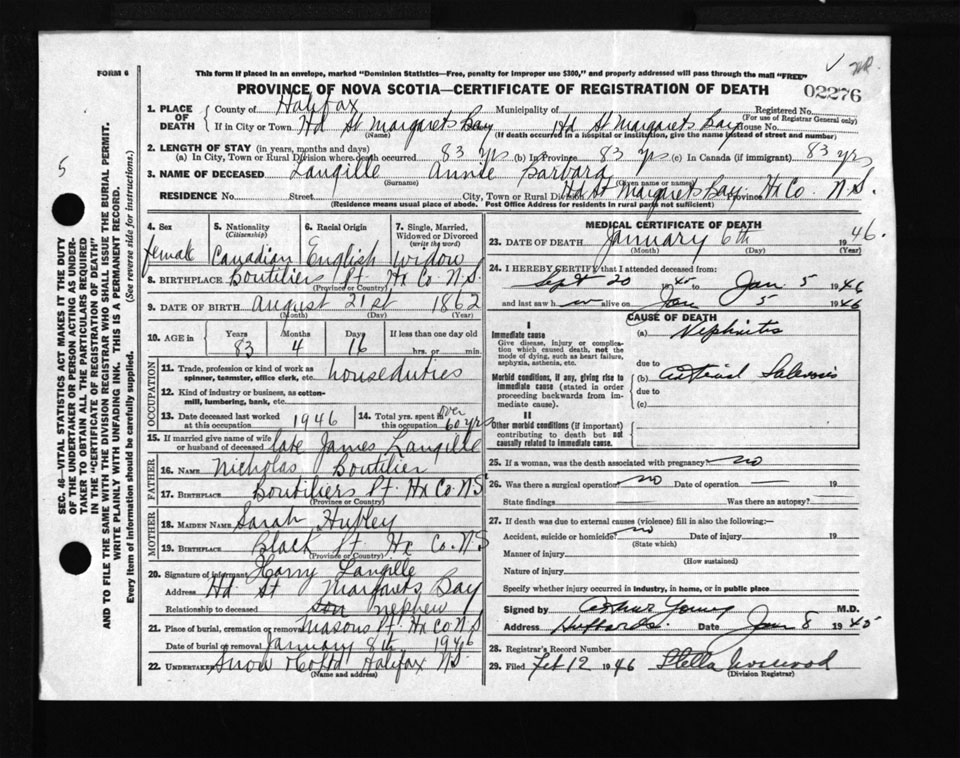 FORM 6
This form if placed in an envelope, marked "Dominion Statistics—Free, penalty for improper use $300," and properly addressed will pass through the mail "FREE"
PROVINCE OF NOVA SCOTIA—CERTIFICATE OF REGISTRATION OF DEATH
02276
5
1. PLACE OF DEATH
County of Halifax Municipality of Registered No.
(For use of Registrar General only)
If in City or Town Hd St Margarets Bay Hd St Margarets Bay House No.
(Name) (If death occurred in a hospital or institution, give the name instead of street and number)
2. LENGTH OF STAY (in years, months and days)
(a) In City, Town or Rural Division where death occurred 83 yrs (b) In Province 83 yrs (c) In Canada (if immigrant) 83 yrs
3. NAME OF DECEASED Langille Annie Barbara
(Surname) (Given name or names)
RESIDENCE No. Street City, Town or Rural Division Hd St Margarets Bay Province Hx Co. N.S.
(Residence means usual place of abode. Post Office Address for residents in rural parts not sufficient)
SEC. 46—VITAL STATISTICS ACT MAKES IT THE DUTY
OF THE UNDERTAKER OR PERSON ACTING AS UNDER-
TAKER TO OBTAIN ALL THE PARTICULARS REQUIRED
IN THE "CERTIFICATE OF REGISTRATION OF DEATH"
AND TO FILE THE SAME WITH THE DIVISION REGISTRAR WHO SHALL ISSUE THE BURIAL PERMIT.
WRITE PLAINLY WITH UNFADING INK. THIS IS A PERMANENT RECORD.
Every item of information should be carefully supplied. (See reverse side for instructions.)
4. Sex 5. Nationality (Citizenship) 6. Racial Origin 7. Single, Married, Widowed or Divorced (write the word)
female Canadian English Widow
8. BIRTHPLACE Boutiliers Pt. Hx Co N.S.
(Province or Country)
9. DATE OF BIRTH August 21st 1862
(Month) (Day) (Year)
10. AGE in Years Months Days If less than one day old
83 4 16 hrs. or min.
OCCUPATION
11. Trade, profession or kind of work as spinner, teamster, office clerk, etc. houseduties
12. Kind of industry or business, as cotton-mill, lumbering, bank, etc.
13. Date deceased last worked at this occupation 1946
14. Total yrs. spent in this occupation over 60 yrs
15. If married give name of wife or husband of deceased late James Langille
FATHER
16. NAME Nicholas Boutilier
17. BIRTHPLACE Boutiliers Pt. Hx Co. N.S
(Province or Country)
MOTHER
18. MAIDEN NAME Sarah Hubley
19. BIRTHPLACE Black Pt. Hx Co. N.S
(Province or Country)
20. Signature of informant Harry Langille
Address Hd. St Margarets Bay
Relationship to deceased son nephew
21. Place of burial, cremation or removal Masons Pt. Hx Co N.S
Date of burial or removal January 8th 1946
22. UNDERTAKER Snow Halifax N.S.
(Name and address)
MEDICAL CERTIFICATE OF DEATH
23. DATE OF DEATH January 6th 1946.
(Month) (Day) (Year)
24. I HEREBY CERTIFY that I attended deceased from:
Sept 20 1945 to Jan 5 1946
and last saw h alive on Jan 5 1946
CAUSE OF DEATH
I
Immediate cause
Give disease, injury or complication which caused death, not the mode of dying, such as heart failure, asphyxia, asthenia, etc.
(a) Nephritis
due to
Morbid conditions, if any, giving rise to immediate cause (stated in order proceeding backwards from immediate cause).
(b)
due to
(c)
II
Other morbid conditions (if important) contributing to death but not causally related to immediate cause.
25. If a woman, was the death associated with pregnancy? no
26. Was there a surgical operation? no Date of operation 19
State findings Was there an autopsy?
27. If death was due to external causes (violence) fill in also the following:—
Accident, suicide or homicide? no Date of injury 19
(State which)
Manner of injury
(How sustained)
Nature of injury
Specify whether injury occurred in industry, in home, or in public place
Signed by Arthur Young M.D.
Address Hubbards. Date Jan 8 1945
28. Registrar's Record Number
29. Filed Feb 12 1946 Stella
(Division Registrar)